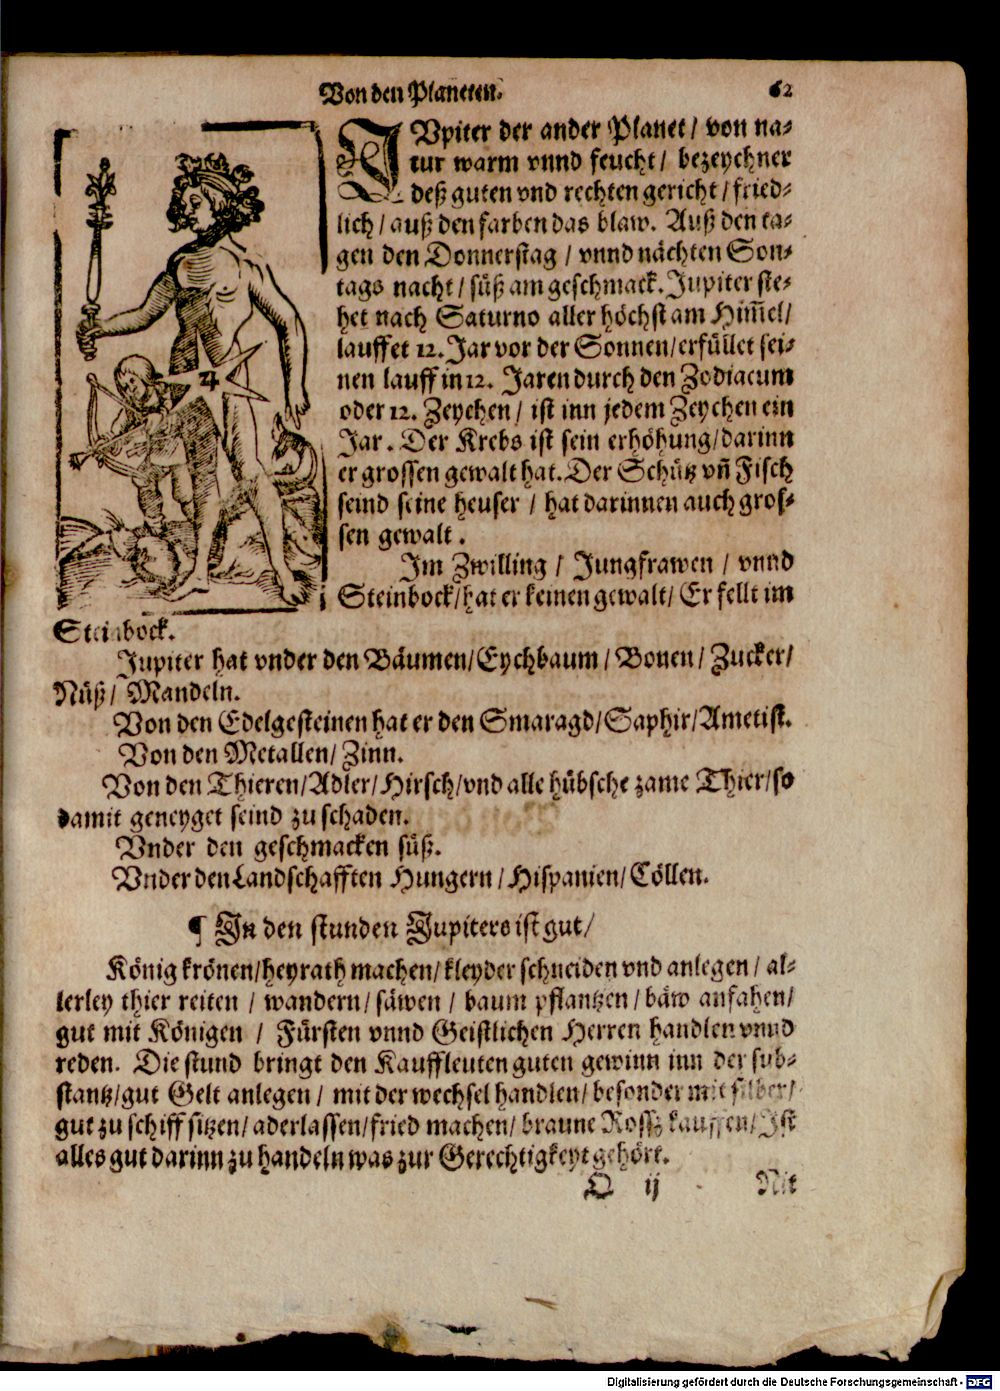 Von den Planeten.
62
IVpiter der ander Planet / von na-
tur warm vnnd feucht / bezeychner
deß guten vnd rechten gericht / fried-
lich / auß den farben das blaw. Auß den ta-
gen den Donnerstag / vnnd nächten Son-
tags nacht / süß am geschmack. Jupiter ste-
het nach Saturno aller höchst am Him̃el /
lauffet 12. Jar vor der Sonnen / erfüllet sei-
nen lauff in 12. Jaren durch den Zodiacum
oder 12. Zeychen / ist inn jedem Zeychen ein
Jar. Der Krebs ist sein erhöhung / darinn
er grossen gewalt hat. Der Schütz vñ Fisch
seind seine heuser / hat darinnen auch gros-
sen gewalt.
Im Zwilling / Jungfrawen / vnnd
Steinbock / hat er keinen gewalt / Er fellt im
Steinbock.
Jupiter hat vnder den Bäumen / Eychbaum / Bonen / Zucker /
Nüß / Mandeln.
Von den Edelgesteinen hat er den Smaragd / Saphir / Ametist.
Von den Metallen / Zinn.
Von den Thieren / Adler / Hirsch / vnd alle hübsche zame Thier / so
damit geneyget seind zu schaden.
Vnder den geschmacken süß.
Vnder den Landschafften Hungern / Hispanien / Cöllen.
¶ In den stunden Jupiters ist gut /
König krönen / heyrath machen / kleyder schneiden vnd anlegen / al-
lerley thier reiten / wandern / säwen / baum pflantzen / bäw anfahen /
gut mit Königen / Fürsten vnnd Geistlichen Herren handlen vnnd
reden. Die stund bringt den Kauffleuten guten gewinn inn der sub-
stantz / gut Gelt anlegen / mit der wechsel handlen / besonder mit silber /
gut zu schiff sitzen / aderlassen / fried machen / braune Rossz kauffen / Ist
alles gut darinn zu handeln was zur Gerechtigkeyt gehört.
Q ij
Nit
Digitalisierung gefördert durch die Deutsche Forschungsgemeinschaft - DFG